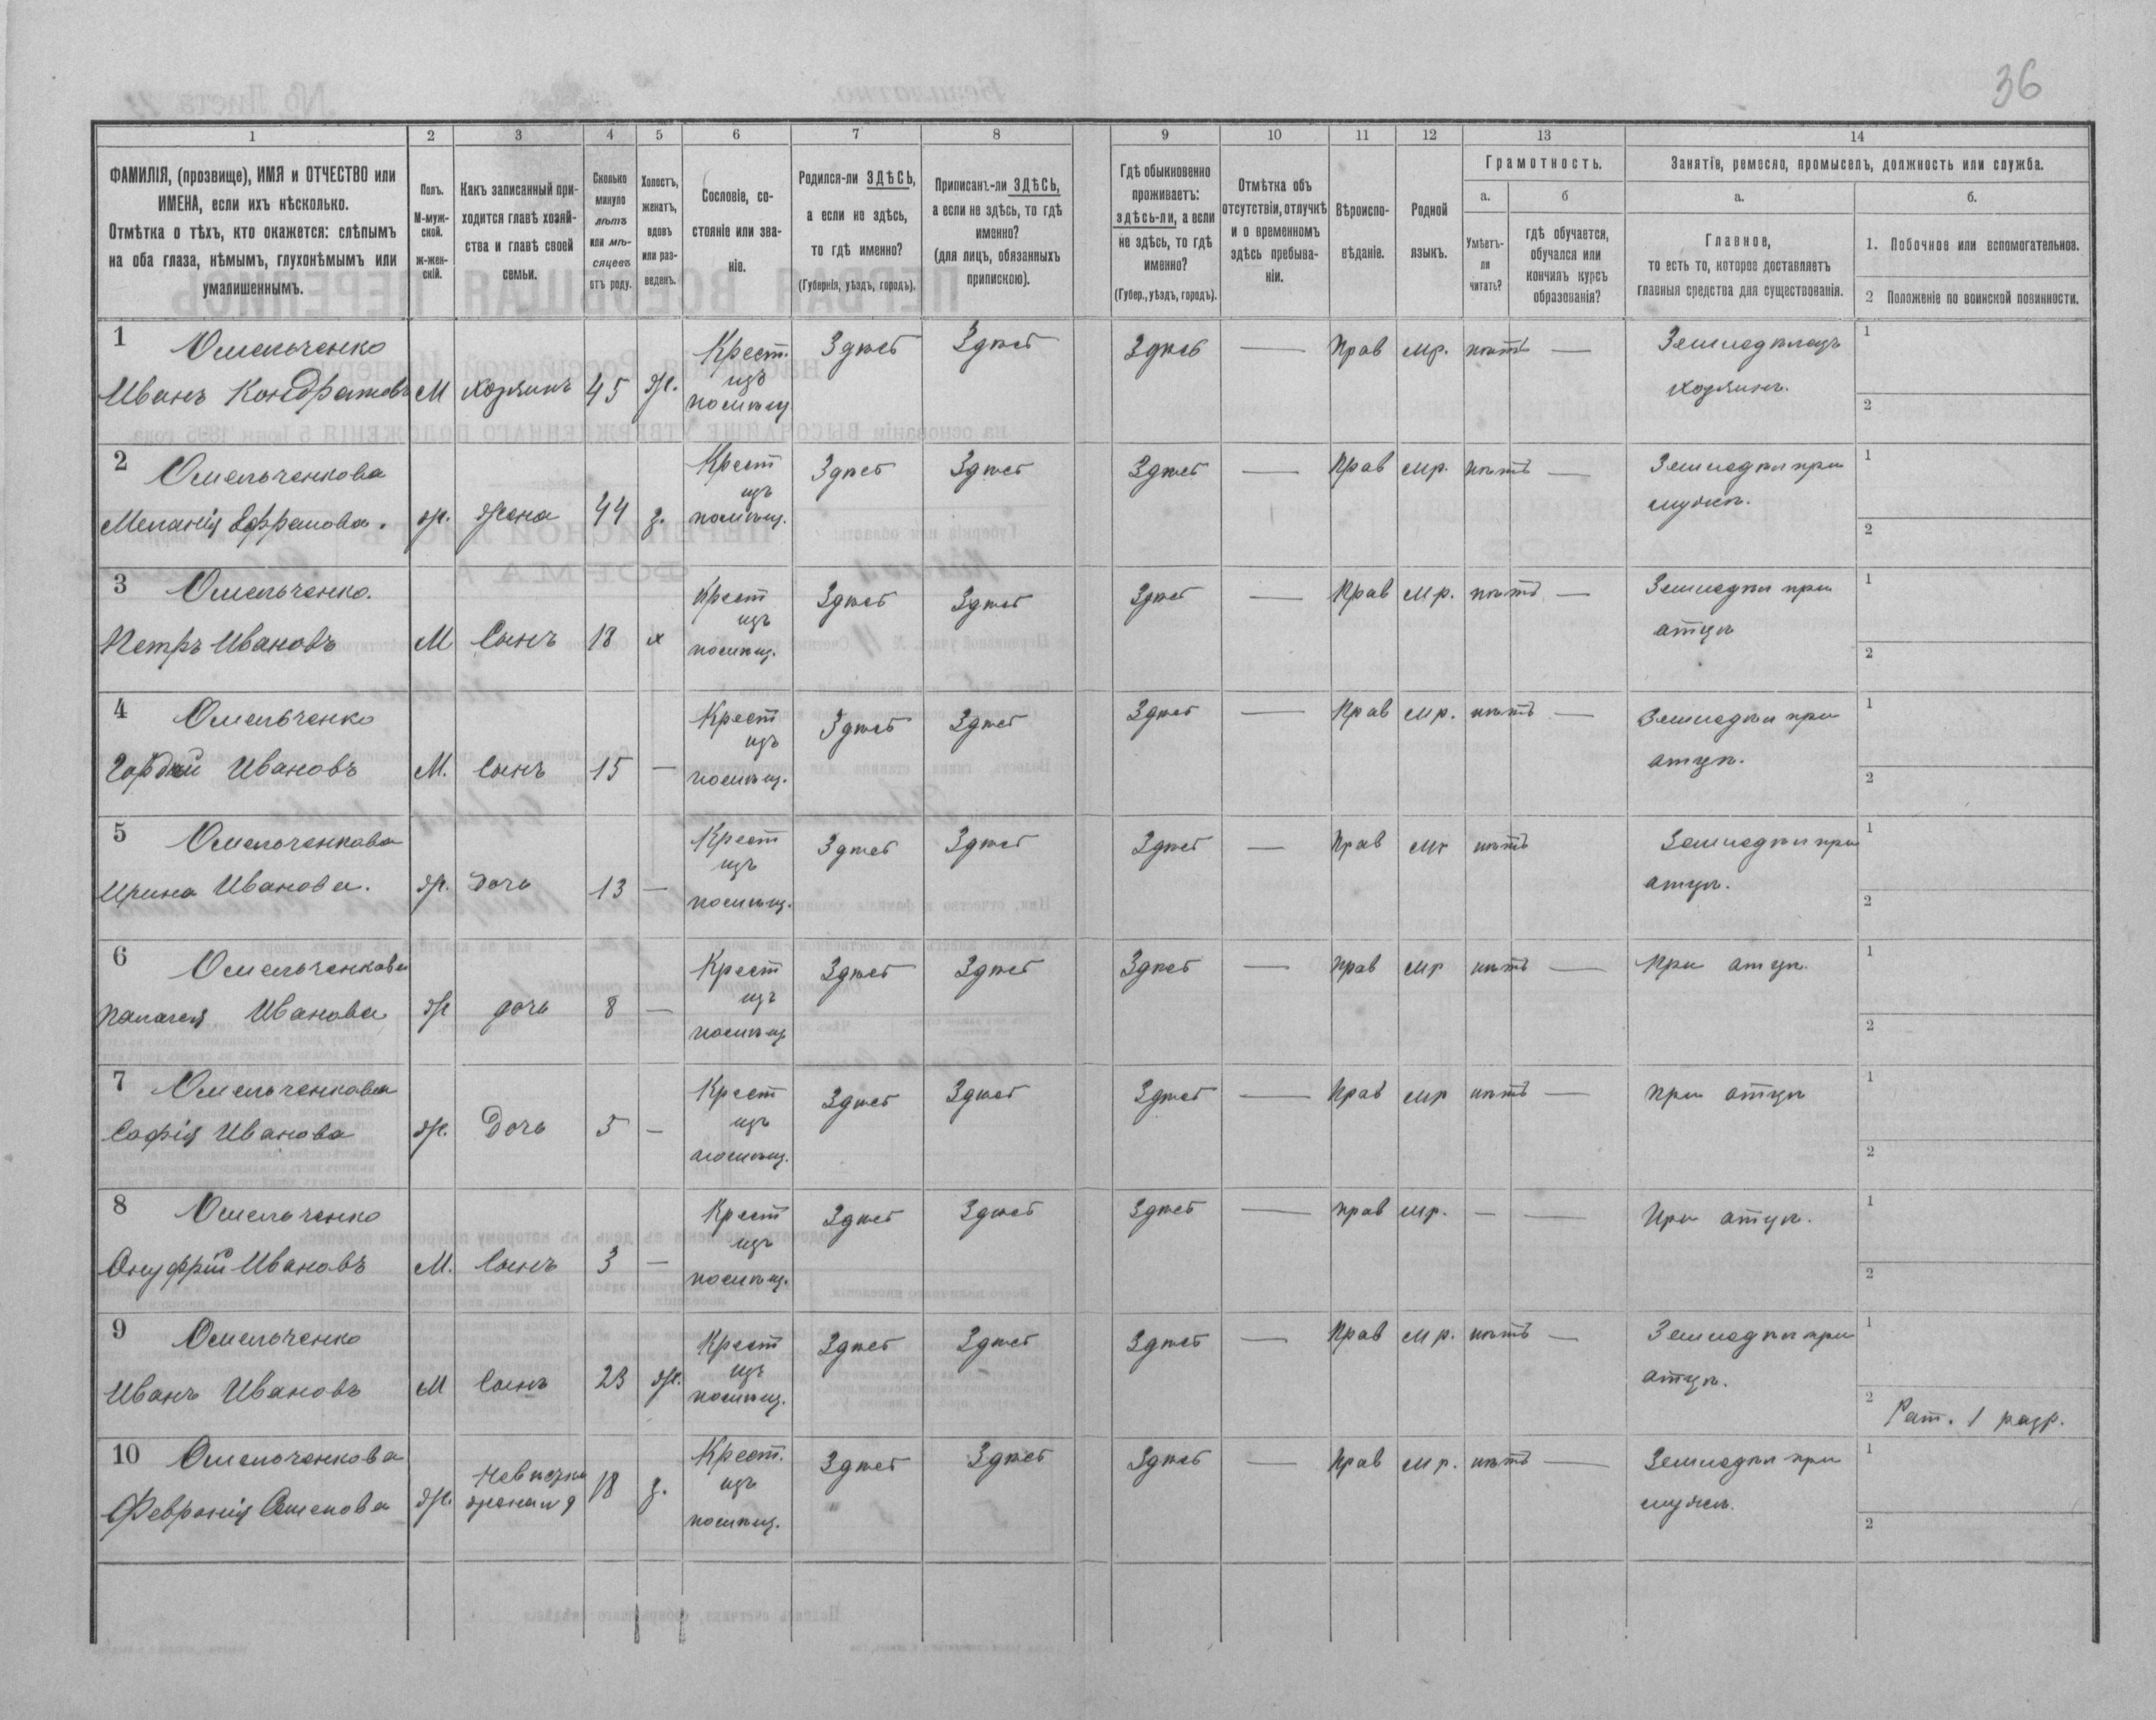 36
1 2 3 4 5 6 7 8 9 10 11 12 13 14
ФАМИЛІЯ, (прозвище), ИМЯ и ОТЧЕСТВО или ИМЕНА, если ихъ нѣсколько.
Отмѣтка о тѣхъ, кто окажется: слѣпымъ на оба глаза, нѣмымъ, глухонѣмымъ или умалишеннымъ.
Полъ. М-мужской. ж-женскій.
Какъ записанный приходится главѣ хозяйства и главѣ своей семьи.
Сколько минуло лѣтъ или мѣсяцевъ отъ роду.
Холостъ, женатъ, вдовъ или разведенъ.
Сословіе, состояніе или званіе.
Родился-ли ЗДѢСЬ, а если не здѣсь, то гдѣ именно?
(Губернія, уѣздъ, городъ).
Приписанъ-ли ЗДѢСЬ, а если не здѣсь, то гдѣ именно?
(для лицъ, обязанныхъ припискою).
Гдѣ обыкновенно проживаетъ: здѣсь-ли, а если не здѣсь, то гдѣ именно?
(Губер., уѣздъ, городъ).
Отмѣтка объ отсутствіи, отлучкѣ и о временномъ здѣсь пребываніи.
Вѣроисповѣданіе.
Родной языкъ.
Грамотность.
а. б
Умѣетъ-ли читать?
гдѣ обучается, обучался или кончилъ курсъ образованія?
Занятіе, ремесло, промыселъ, должность или служба.
а. б.
Главное,
то есть то, которое доставляетъ главныя средства для существованія.
1. Побочное или вспомогательное.
2 Положеніе по воинской повинности.
1 Омельченко Крест. Здѣсь Здѣсь Здѣсь — Прав мр. нѣтъ — Земледѣлецъ 1
Иванъ Кондратовъ М хозяинъ 45 ж. изъ помѣщ хозяинъ. 2
2 Омельченкова Крест Здѣсь Здѣсь Здѣсь — Прав мр. нѣтъ — Земледѣл при 1
Меланія ж. жена 44 з. изъ помѣщ. мужѣ. 2
3 Омельченко. Крест Здѣсь Здѣсь Здѣсь — Прав мр. нѣтъ — Земледѣл при 1
Петръ Ивановъ М Сынъ 18 х изъ помѣщ. отцѣ 2
4 Омельченко Крест Здѣсь Здѣсь Здѣсь — Прав мр. нѣтъ — Земледѣл при 1
Гордѣй Ивановъ М. Сынъ 15 — изъ помѣщ. отцѣ. 2
5 Омельченкова Крест Здѣсь Здѣсь Здѣсь — Прав мр нѣтъ Земледѣл при 1
Ирина Иванова. ж. Дочь 13 — изъ помѣщ. отцѣ. 2
6 Омельченкова Крест Здѣсь Здѣсь Здѣсь — Прав мр нѣтъ — При отцѣ. 1
Палагея Иванова ж дочь 8 — изъ помѣщ 2
7 Омельченкова Крест Здѣсь Здѣсь Здѣсь — Прав мр нѣтъ — при отцѣ 1
Софія Иванова ж. Дочь 5 — изъ помѣщ. 2
8 Омельченко Крест Здѣсь Здѣсь Здѣсь — прав мр. — — При отцѣ. 1
Онуфрій Ивановъ М. Сынъ 3 — изъ помѣщ. 2
9 Омельченко Крест Здѣсь Здѣсь Здѣсь — Прав мр. нѣтъ — Земледѣл при 1
Иванъ Ивановъ М Сынъ 23 ж. изъ помѣщ. отцѣ. 2 Рат. 1 разр.
10 Омельченкова Невѣстка Крест. Здѣсь Здѣсь Здѣсь — Прав мр. нѣтъ — Земледѣл при 1
Февронія Семенова ж. жена 9 18 з. изъ помѣщ. мужѣ. 2